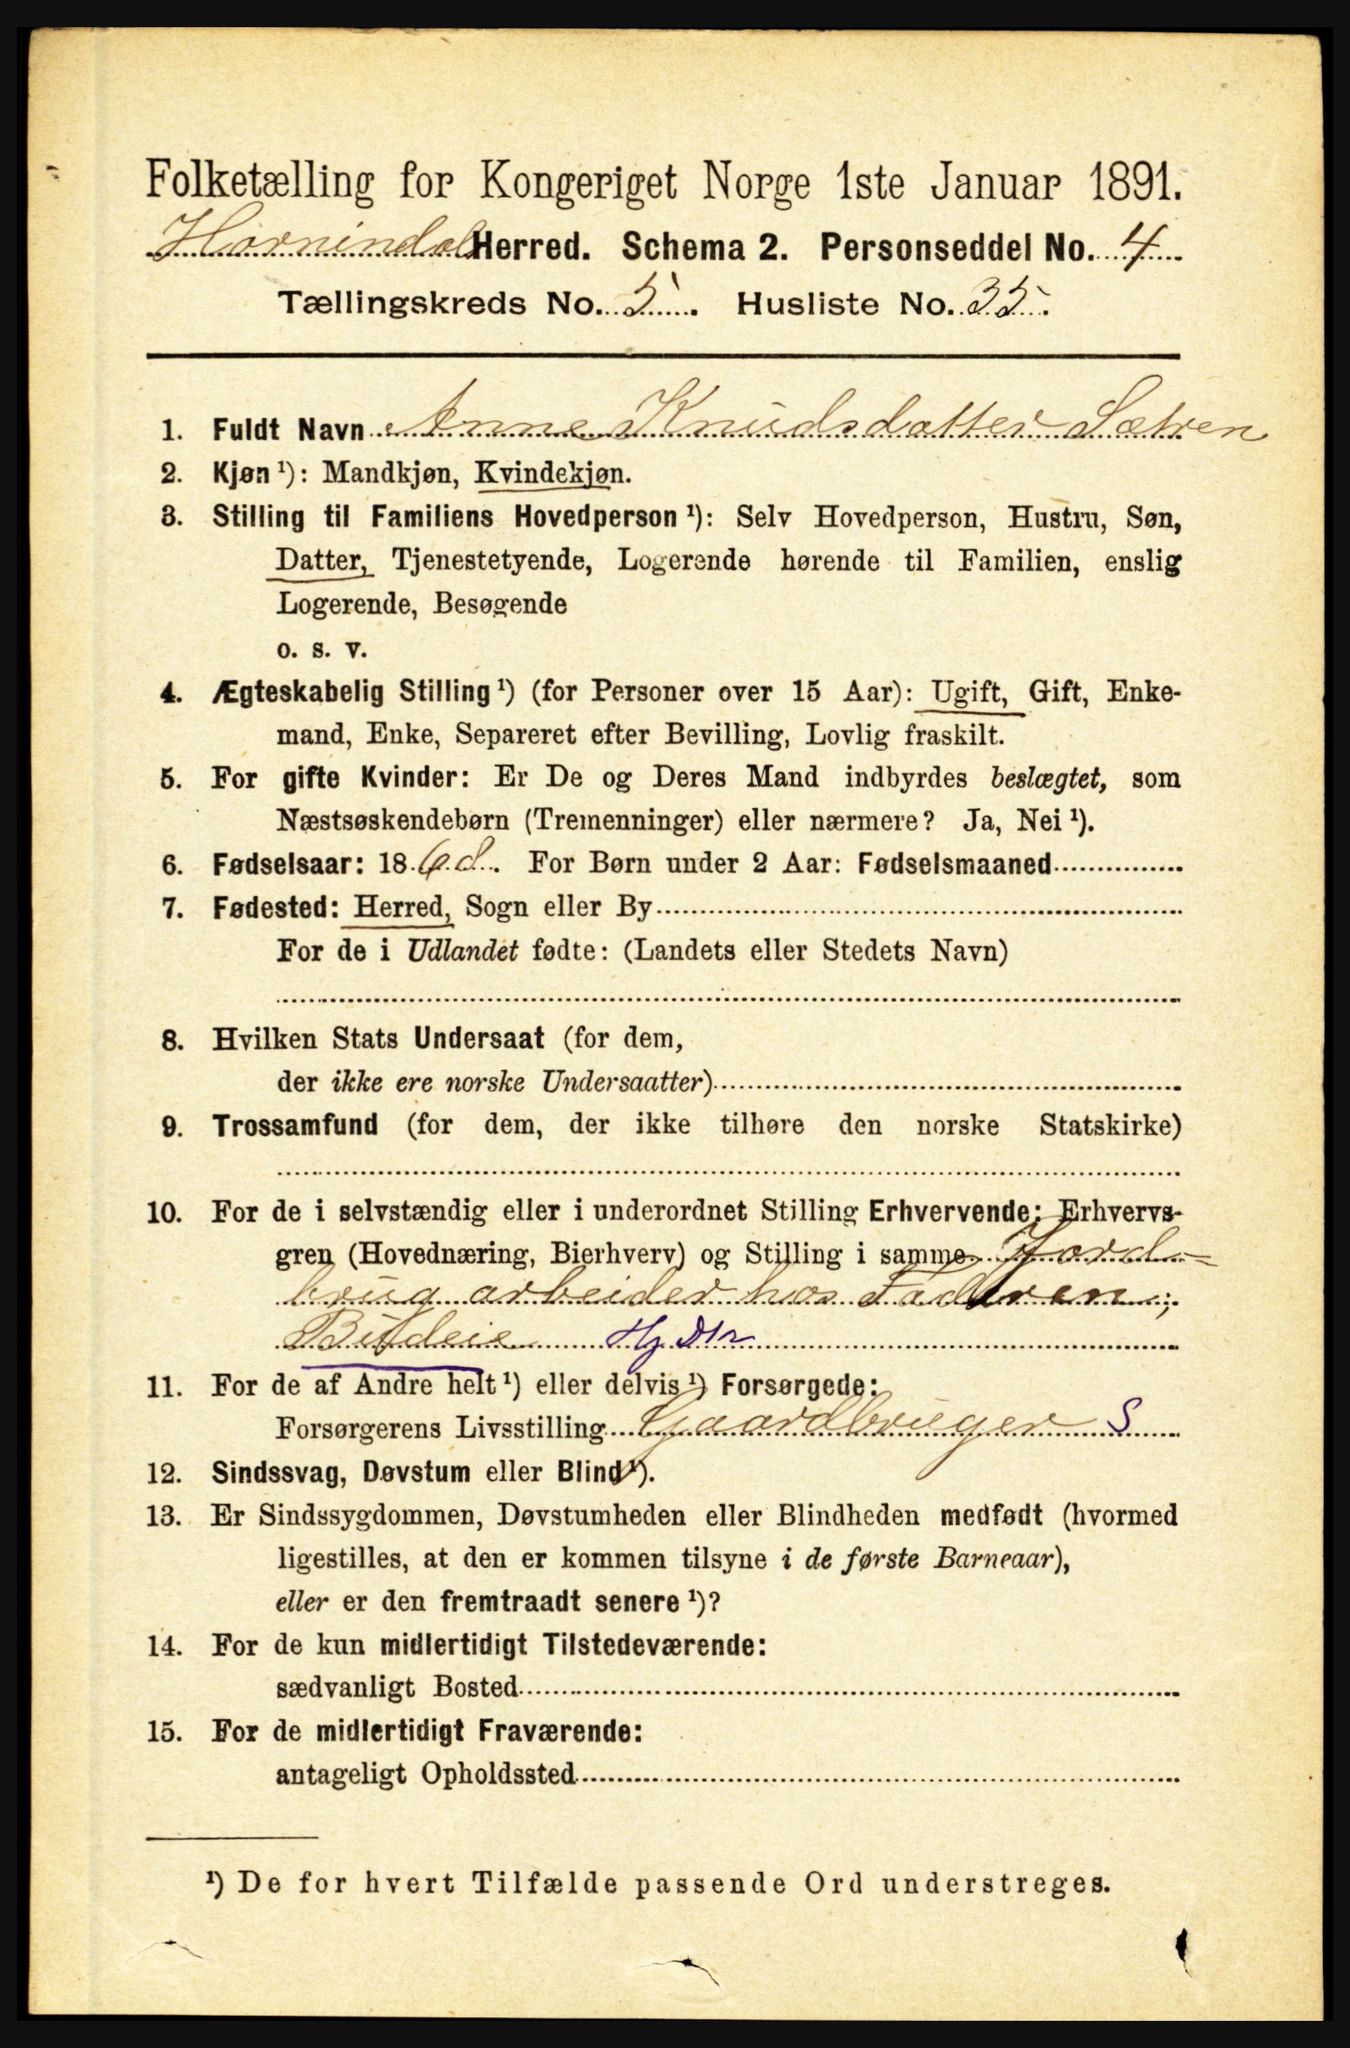 Folketælling for Kongeriget Norge 1ste Januar 1891.
Hornindal Herred. Schema 2. Personseddel No. 4
Tællingskreds No. 5. Husliste No. 35.
1. Fuldt Navn Anne Knudsdatter Sætren
2. Kjøn ¹): Mandkjøn, Kvindekjøn.
3. Stilling til Familiens Hovedperson ¹): Selv Hovedperson, Hustru, Søn,
Datter, Tjenestetyende, Logerende hørende til Familien, enslig
Logerende, Besøgende
o. s. v.
4. Ægteskabelig Stilling ¹) (for Personer over 15 Aar): Ugift, Gift, Enke-
mand, Enke, Separeret efter Bevilling, Lovlig fraskilt.
5. For gifte Kvinder: Er De og Deres Mand indbyrdes beslægtet, som
Næstsøskendebørn (Tremenninger) eller nærmere? Ja, Nei ¹).
6. Fødselsaar: 1868. For Børn under 2 Aar: Fødselsmaaned
7. Fødested: Herred, Sogn eller By
For de i Udlandet fødte: (Landets eller Stedets Navn)
8. Hvilken Stats Undersaat (for dem,
der ikke ere norske Undersaatter)
9. Trossamfund (for dem, der ikke tilhøre den norske Statskirke)
10. For de i selvstændig eller i underordnet Stilling Erhvervende: Erhvervs-
gren (Hovednæring, Bierhverv) og Stilling i samme Jord-
brug arbeider hos Faderen;
Budeie Hj Dtr
11. For de af Andre helt ¹) eller delvis ¹) Forsørgede:
Forsørgerens Livsstilling Gaardbruger S
12. Sindssvag, Døvstum eller Blind ¹).
13. Er Sindssygdommen, Døvstumheden eller Blindheden medfødt (hvormed
ligestilles, at den er kommen tilsyne i de første Barneaar),
eller er den fremtraadt senere ¹)?
14. For de kun midlertidigt Tilstedeværende:
sædvanligt Bosted
15. For de midlertidigt Fraværende:
antageligt Opholdssted
¹) De for hvert Tilfælde passende Ord understreges.